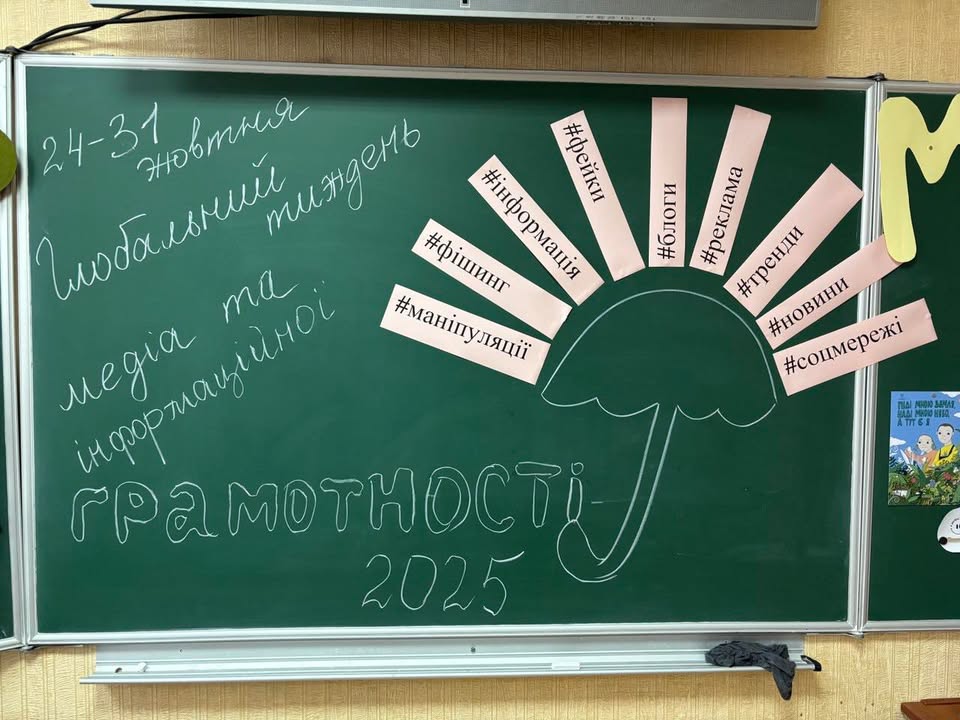 24-31
жовтня
Глобальний
тиждень
медіа та
інформаційної
грамотності
2025
#маніпуляції
#фішинг
#інформація
#фейки
#блоги
#реклама
#тренди
#новини
#соцмережі
М
ПІДІ МНОЮ ЗЕМЛЯ,
НАДІ МНОЮ НЕБО,
А ТУТ Є Я